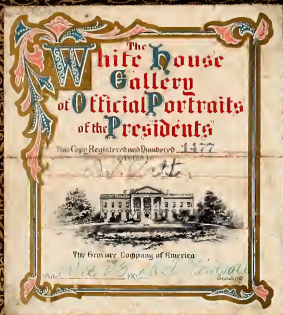 The
White House
Gallery
of Official Portraits
of the Presidents
This Copy Registered and Numbered 1477
The Gravure Company of America